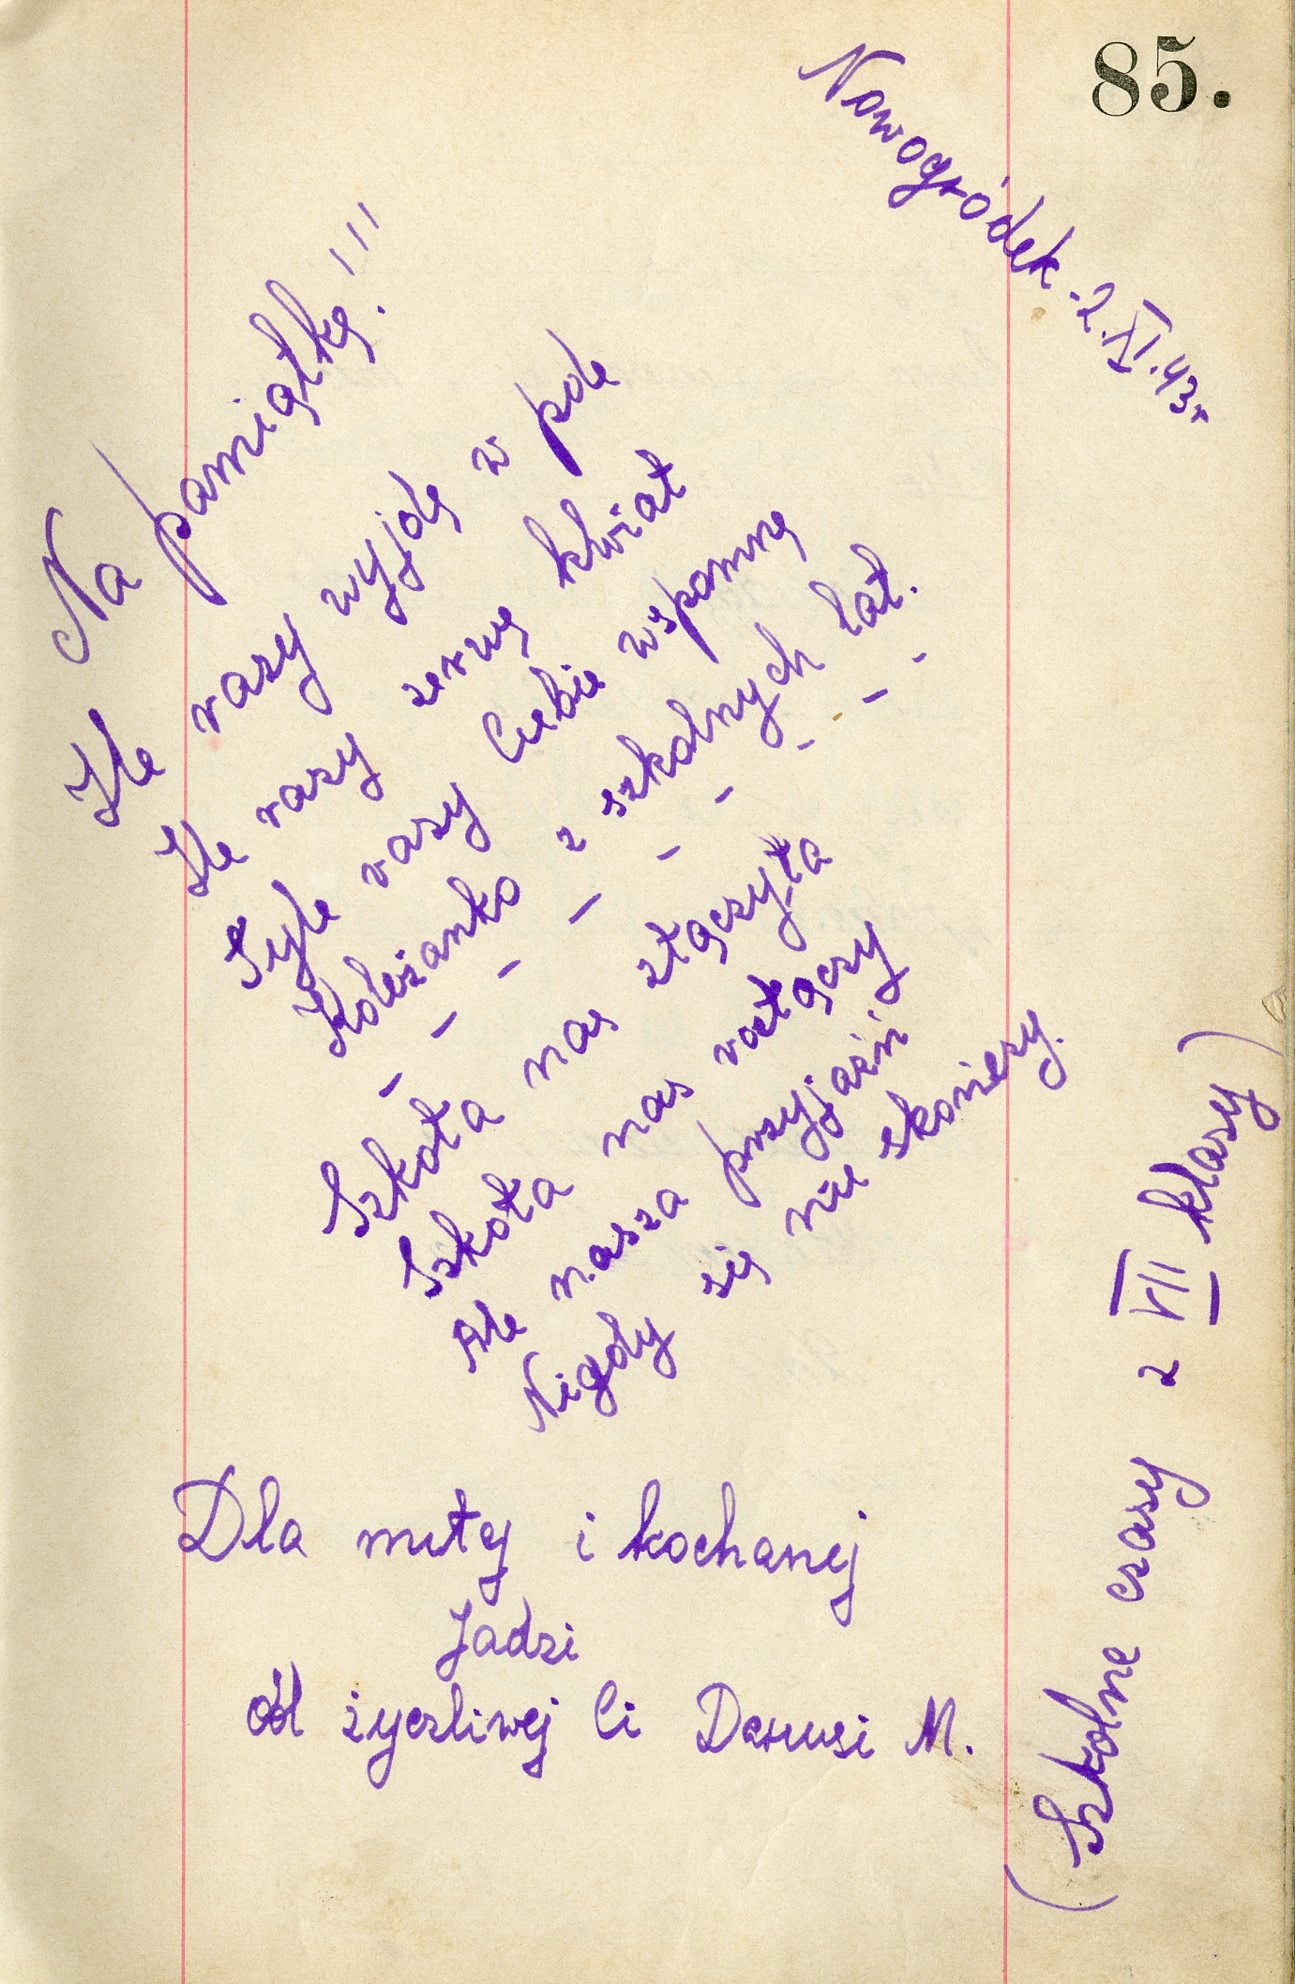 85.
Nowogródek - 2.XI.43r
Na pamiątkę!!!
Ile razy wyjdę w pole
Ile razy zerwę kwiat
Tyle razy Ciebie wspomnę
Koleżanko z szkolnych lat.
- - - - - - - -
Szkoła nas złączyła
Szkoła nas rozłączy
Ale nasza przyjaźń
Nigdy się nie skończy.
Dla miłej i kochanej
Jadzi
od życzliwej Ci Danusi M.
(Szkolne czasy z VII klasy)